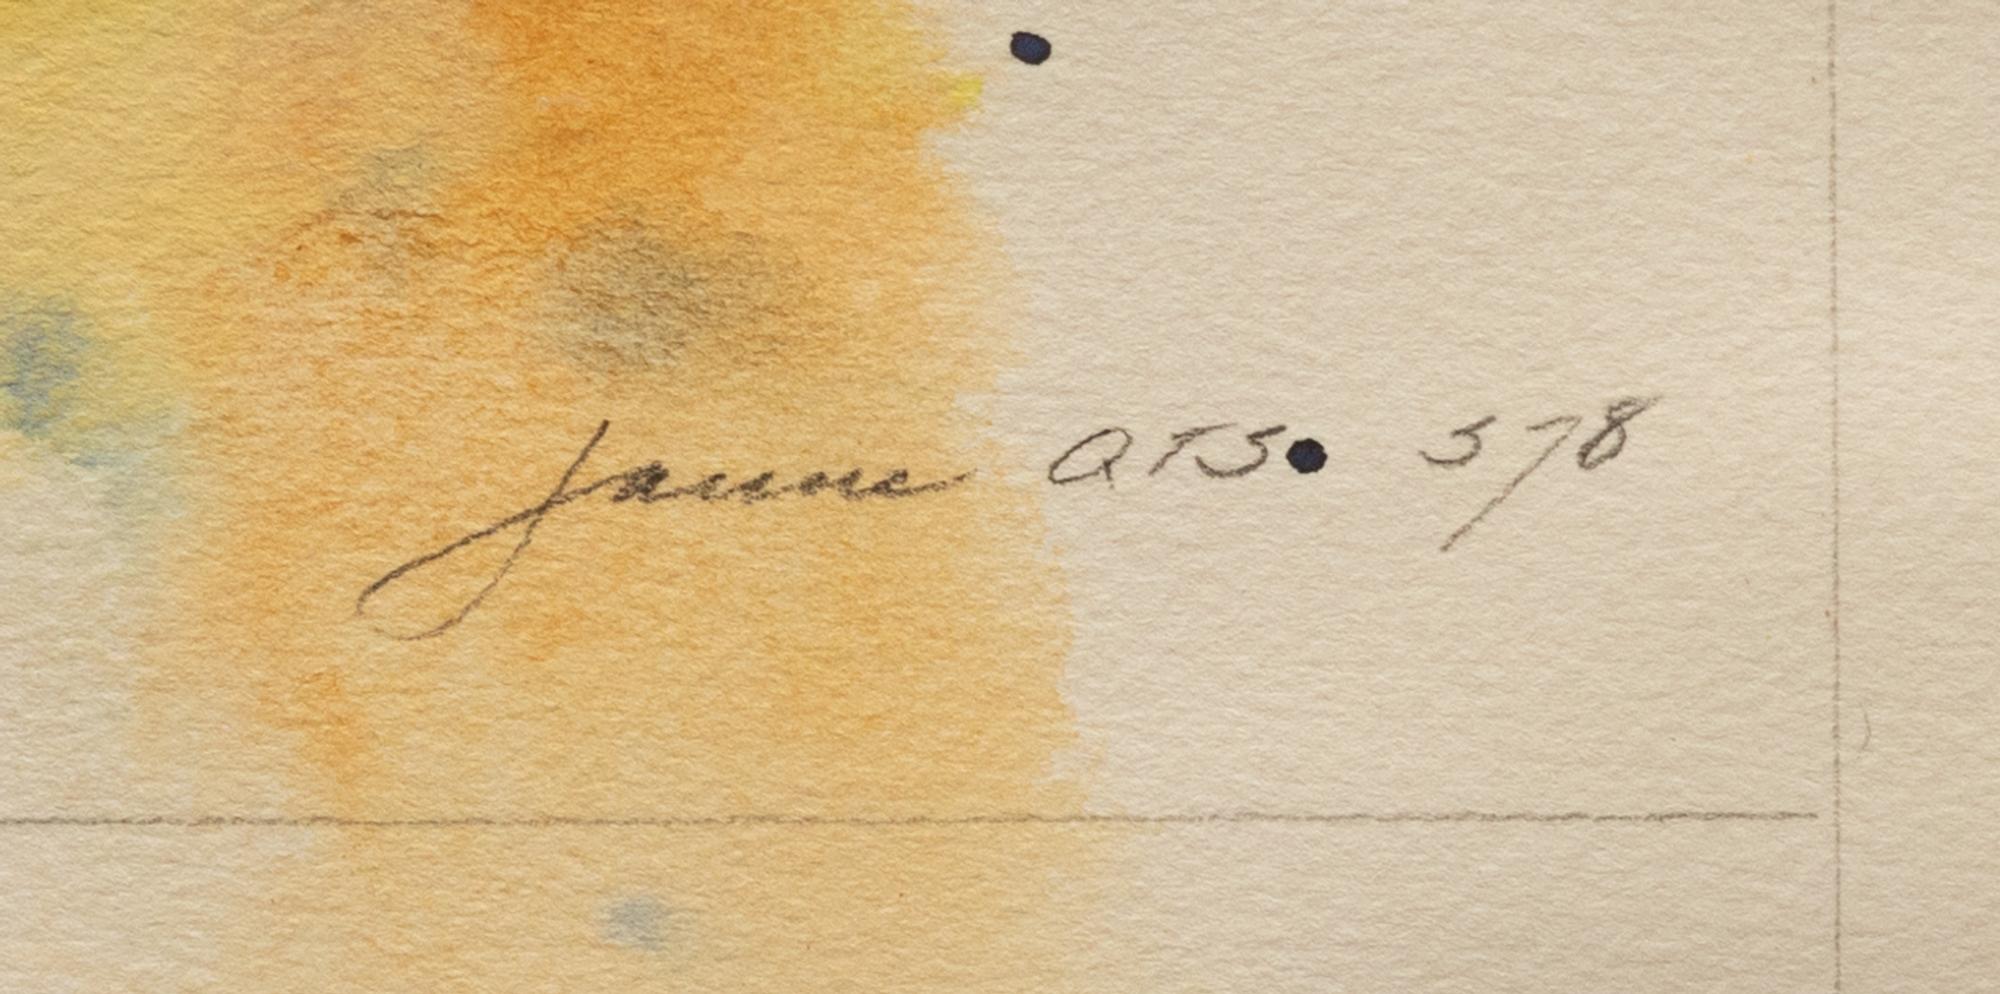 Janne QTS• 578